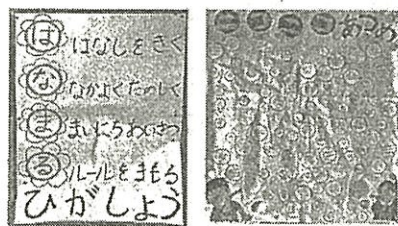 はなしをきく
なかよくたのしく
まいにちあいさつ
ルールをまもる
ひがしょう
あつめ